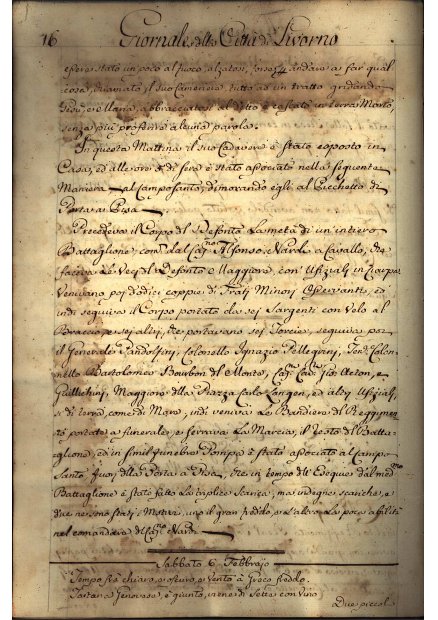 16 Giornale della Città di Livorno
essere stato un poco al fuoco, alzatosi, forse andava a far qual
cosa, chiamato il suo Cameriere, tutto ad un tratto gridando
Giesù, e Maria, abbracciatosi al d° e cascato in terra Morto
senza più proferire alcuna parola.
In questa Mattina il suo Cadavere è stato esposto in
Casa, ed alle ore di sera è stato associato nella seguente
Maniera al Camposanto, dimorando egli al Picchetto di
Porta a Pisa
Precedeva il Corpo del Defonto la metà di un intiero
Battaglione com.to dal Cap.no Alfonso Nardi a Cavallo, che
faceva le Veci del Defonto Maggiore, con Ufiziali in
Venivano poi dodici coppie di Frati Minori Osservanti, ed
indi seguiva il Corpo portato da sei Sargenti con Velo al
Braccio, e sei altri, che portavano sei Torcie, seguiva poi
il Generale Pandolfini, Colonello Ignazio Pellegrini, Ten.e Colon
nello Bartolomeo Bourbon del Monte, Cap.ni Gio: Acton, e
Guillichini, Maggiore della Piazza Carlo Longon, ed altri Ufiziali,
e di terra, come di Mare, indi veniva le Bandiere del Reggimen
to portate a funerale, e serrava la Marcia, il resto del Batta-
glione, ed in simil funebre Pompa è stato associato al Campo
Santo fuori della Porta a Pisa, che in tempo dell'Esequie dal med.mo
Battaglione è stato fatto la triplice Scarica, ma indegne scariche, e
due ne sono stati Motivi, uno il gran freddo, e l'altro la poca abilità
nel comandare del Cap.no Nardi
Sabbato 6 Febbrajo
Tempo frà chiaro, e oscuro, e vento à Greco freddo.
Tartana Genovese, è giunta, viene di Sette con Vino
Due piccol